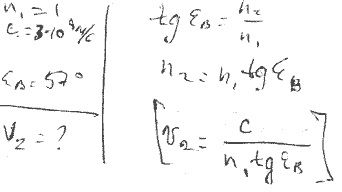 n₁ = 1
c = 3·10⁸ м/с
ε_B = 57°
V₂ = ?
tg ε_B = n₂/n₁
n₂ = n₁ tg ε_B
[V₂ = c/(n₁ tg ε_B)]